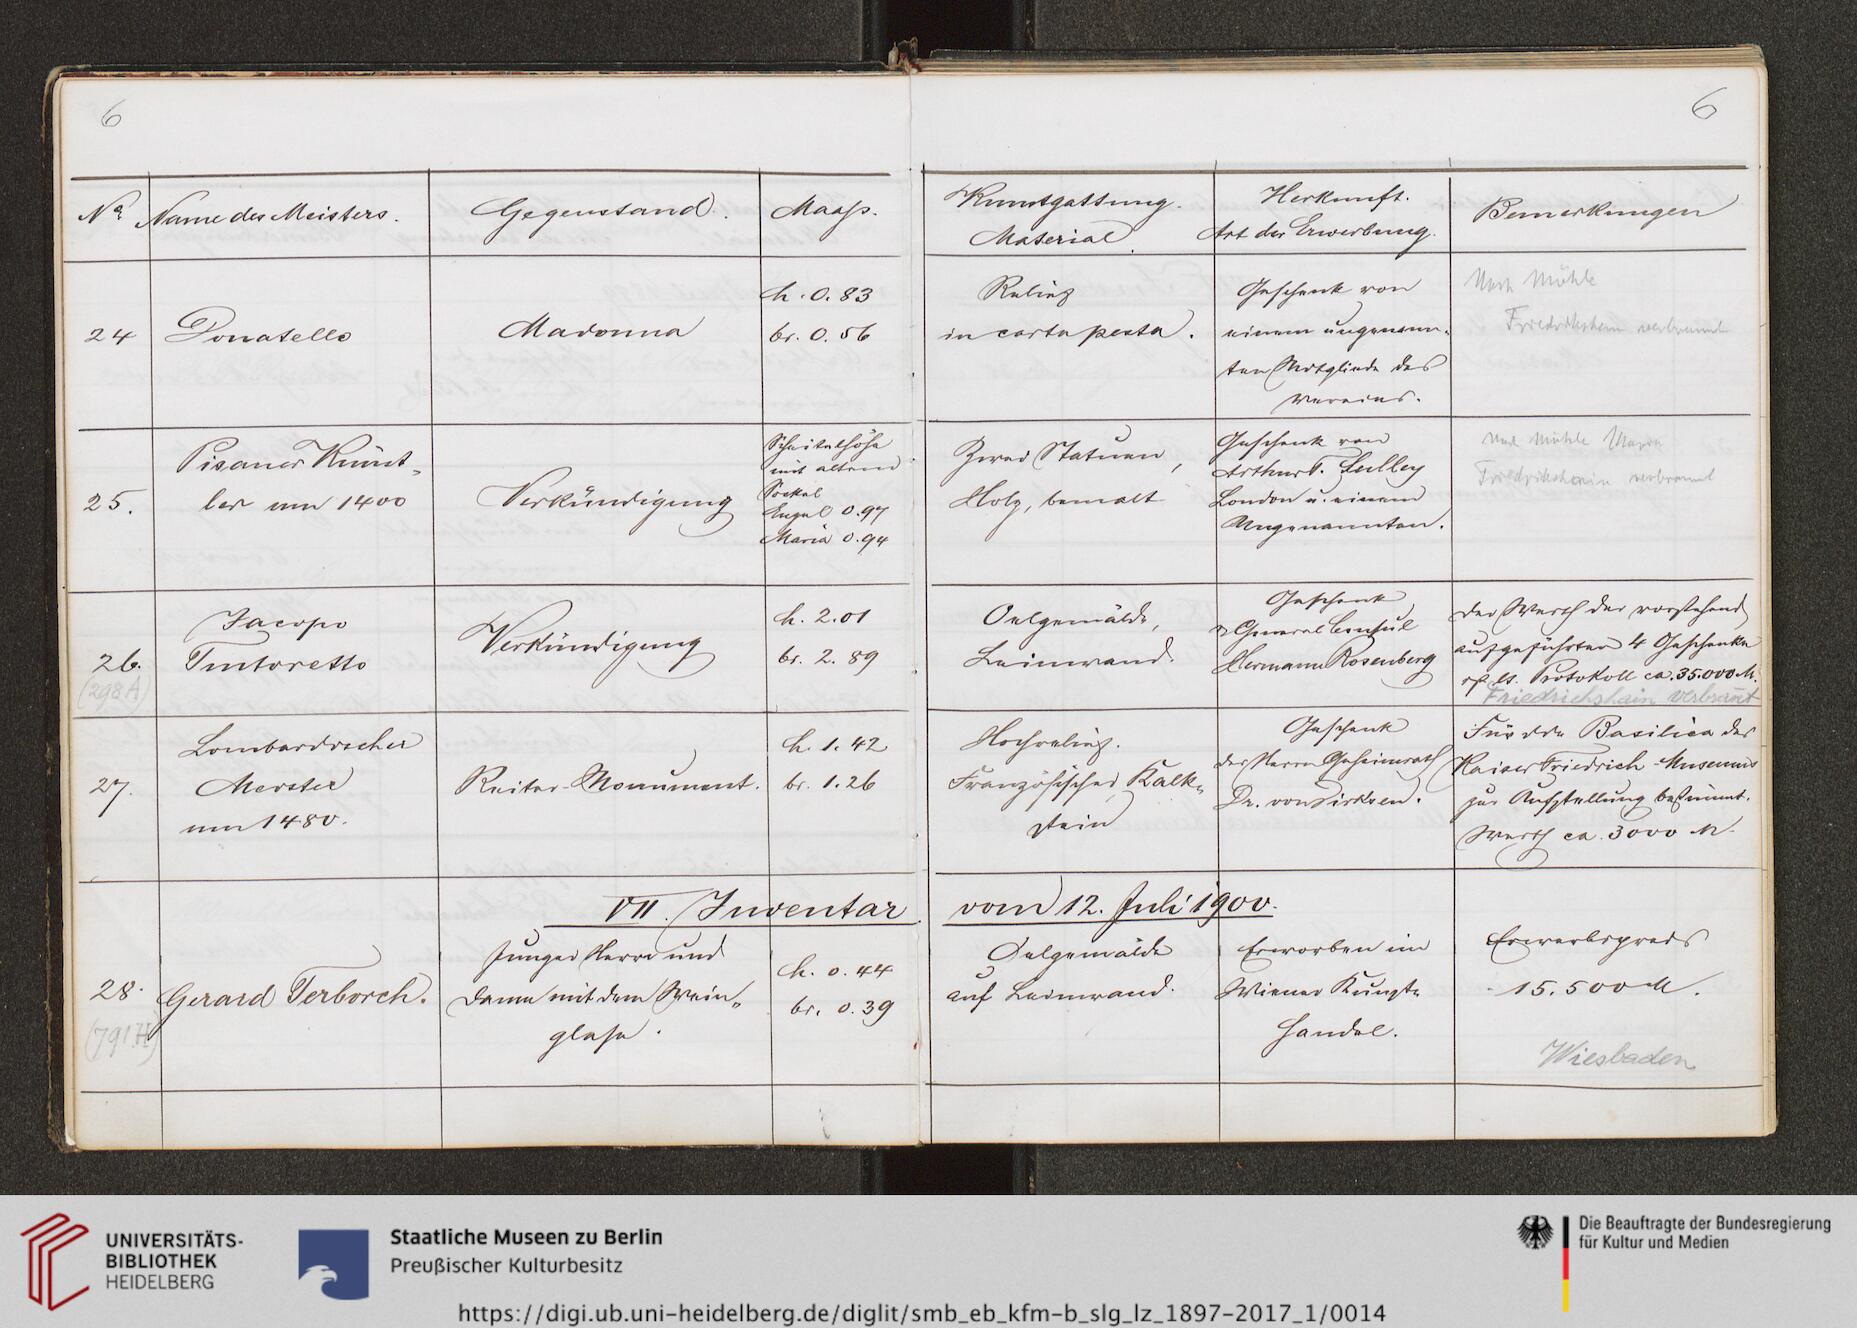 6
6
No. Name des Meisters. Gegenstand. Maaß. Kunstgattung. Material. Herkunft. Art der Erwerbung. Bemerkungen
24 Donatello Madonna
h. 0.83
br. 0.56
Relief
in carta pesta.
Geschenk von
einem ungenann-
ten Mitgliede des
Vereins.
Nach Mühle
Friedrichshain verbrannt
25. Pisaner Künst-
ler um 1400
Verkündigung
Scheitelhöhe
mit altem
Sockel
Engel 0.97
Maria 0.94
Zwei Statuen,
Holz, bemalt
Geschenk von
Arthur F. Sulley
London u. einem
Ungenannten.
Nach Mühle Maria
Friedrichshain verbrannt
26.
(298A)
Jacopo
Tintoretto
Verkündigung
h. 2.01
br. 2.89
Oelgemälde,
Leinwand.
Geschenk
General Consul
Hermann Rosenberg
Der Werth der vorstehend
aufgeführten 4 Geschenke
lt. Protokoll ca. 35.000 M.
Friedrichshain verbrannt
27. Lombardischer
Meister
um 1480.
Reiter-Monument.
h. 1.42
br. 1.26
Hochrelief.
Französischer Kalk-
stein
Geschenk
des Herrn Geheimrath
Dr. von Dirksen.
Für die Basilica des
Kaiser Friedrich-Museums
zur Aufstellung bestimmt.
Werth ca. 3000 M.
VII. Inventar vom 12. Juli 1900.
28.
(791H)
Gerard Terborch.
Junger Herr und
Dame mit dem Wein-
glase.
h. 0.44
br. 0.39
Oelgemälde
auf Leinwand.
Erworben im
Wiener Kunst-
handel.
Erwerbspreis
15.500 M.
Wiesbaden
UNIVERSITÄTS-
BIBLIOTHEK
HEIDELBERG
Staatliche Museen zu Berlin
Preußischer Kulturbesitz
Die Beauftragte der Bundesregierung
für Kultur und Medien
https://digi.ub.uni-heidelberg.de/diglit/smb_eb_kfm-b_slg_lz_1897-2017_1/0014